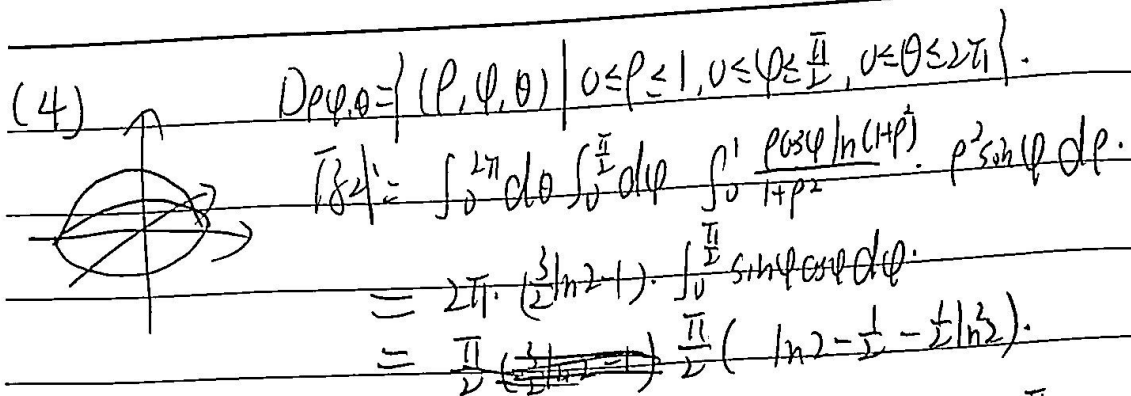 (4) Dρφ,θ={(ρ,φ,θ)|0≤ρ≤1,0≤φ≤π/2,0≤θ≤2π}.
原式=∫₀^{2π}dθ∫₀^{π/2}dφ ∫₀^1 (ρcosφ ln(1+ρ²))/(1+ρ²)·ρ²sinφ dρ.
=2π·(3/2 ln2-1)·∫₀^{π/2} sinφcosφdφ.
=π/2 π/2( ln2-1/2-1/2 ln²2).